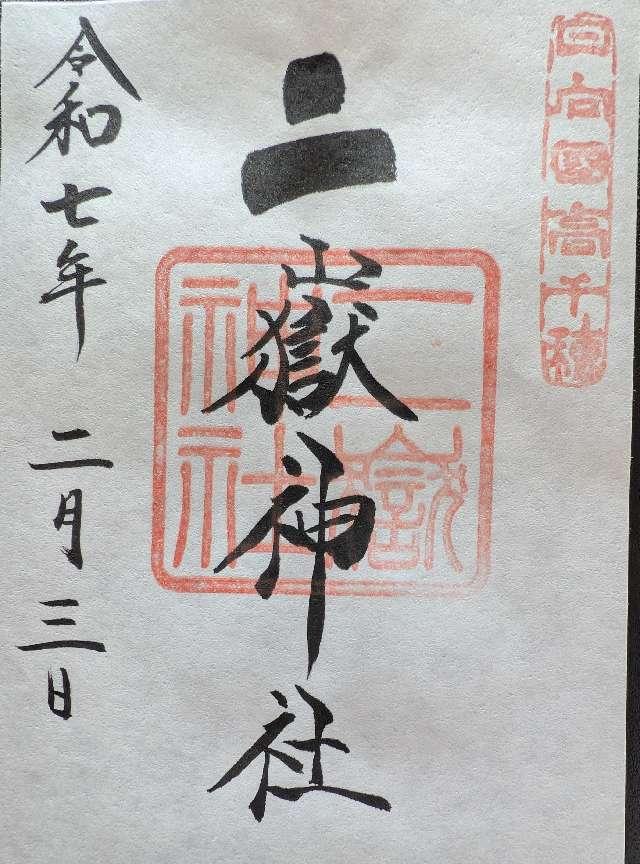 日向国高千穂
二嶽神社
二嶽神社
令和七年 二月三日